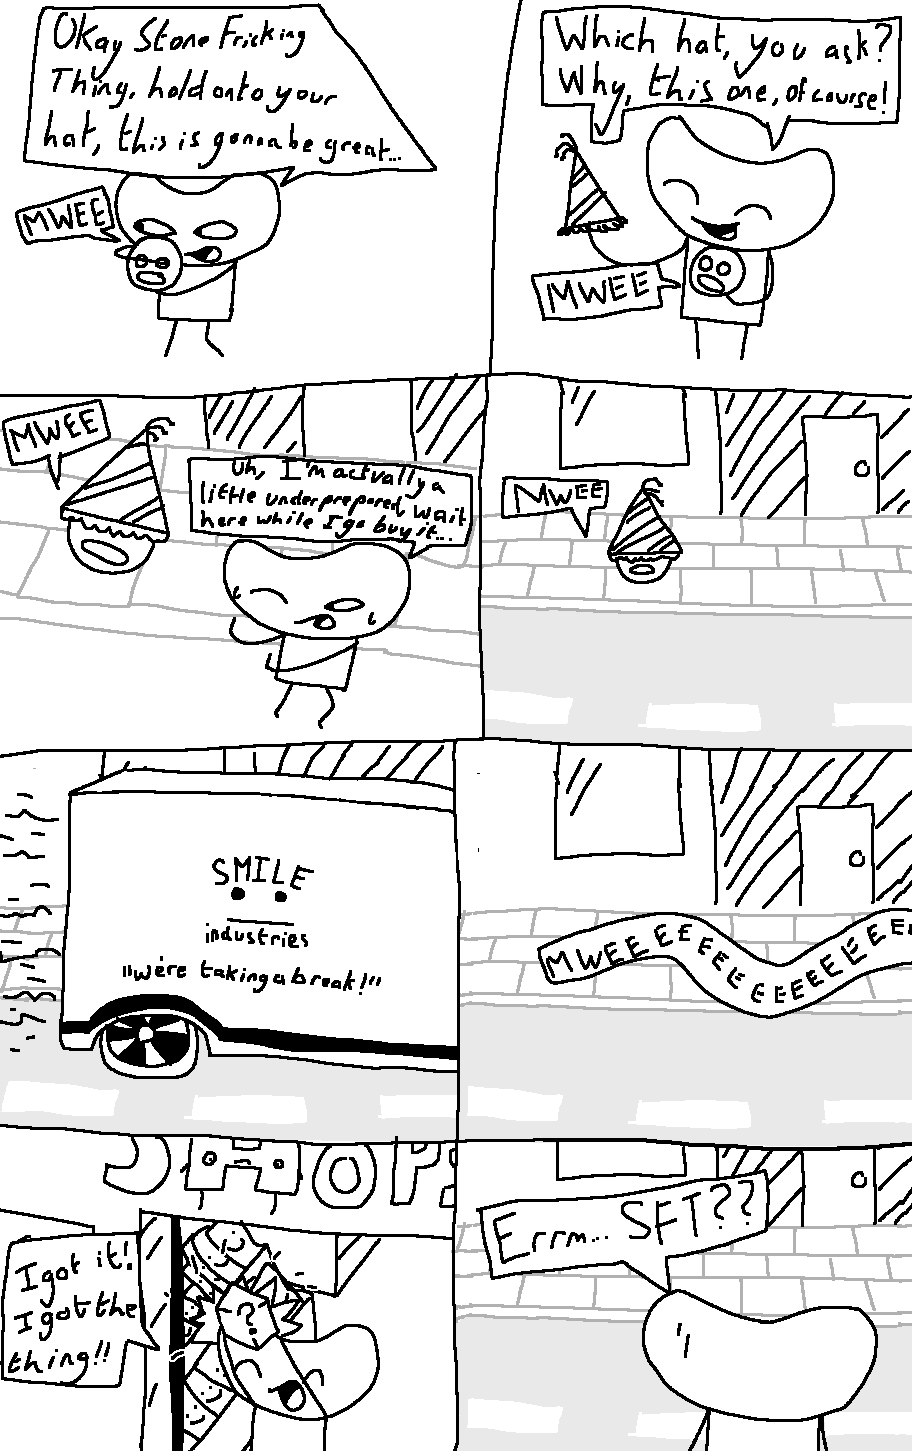 Okay Stone Fricking
Thing, hold onto your
hat, this is gonna be great...
MWEE
Which hat, you ask?
Why, this one, of course!
MWEE
MWEE
Uh, I'm actually a
little underprepared, wait
here while I go buy it...
MWEE
SMILE
industries
"we're taking a break!"
MWEEEEEEEEEEEEEEEEE
SHOP
I got it!
I got the
thing!!
?
Errm... SFT??